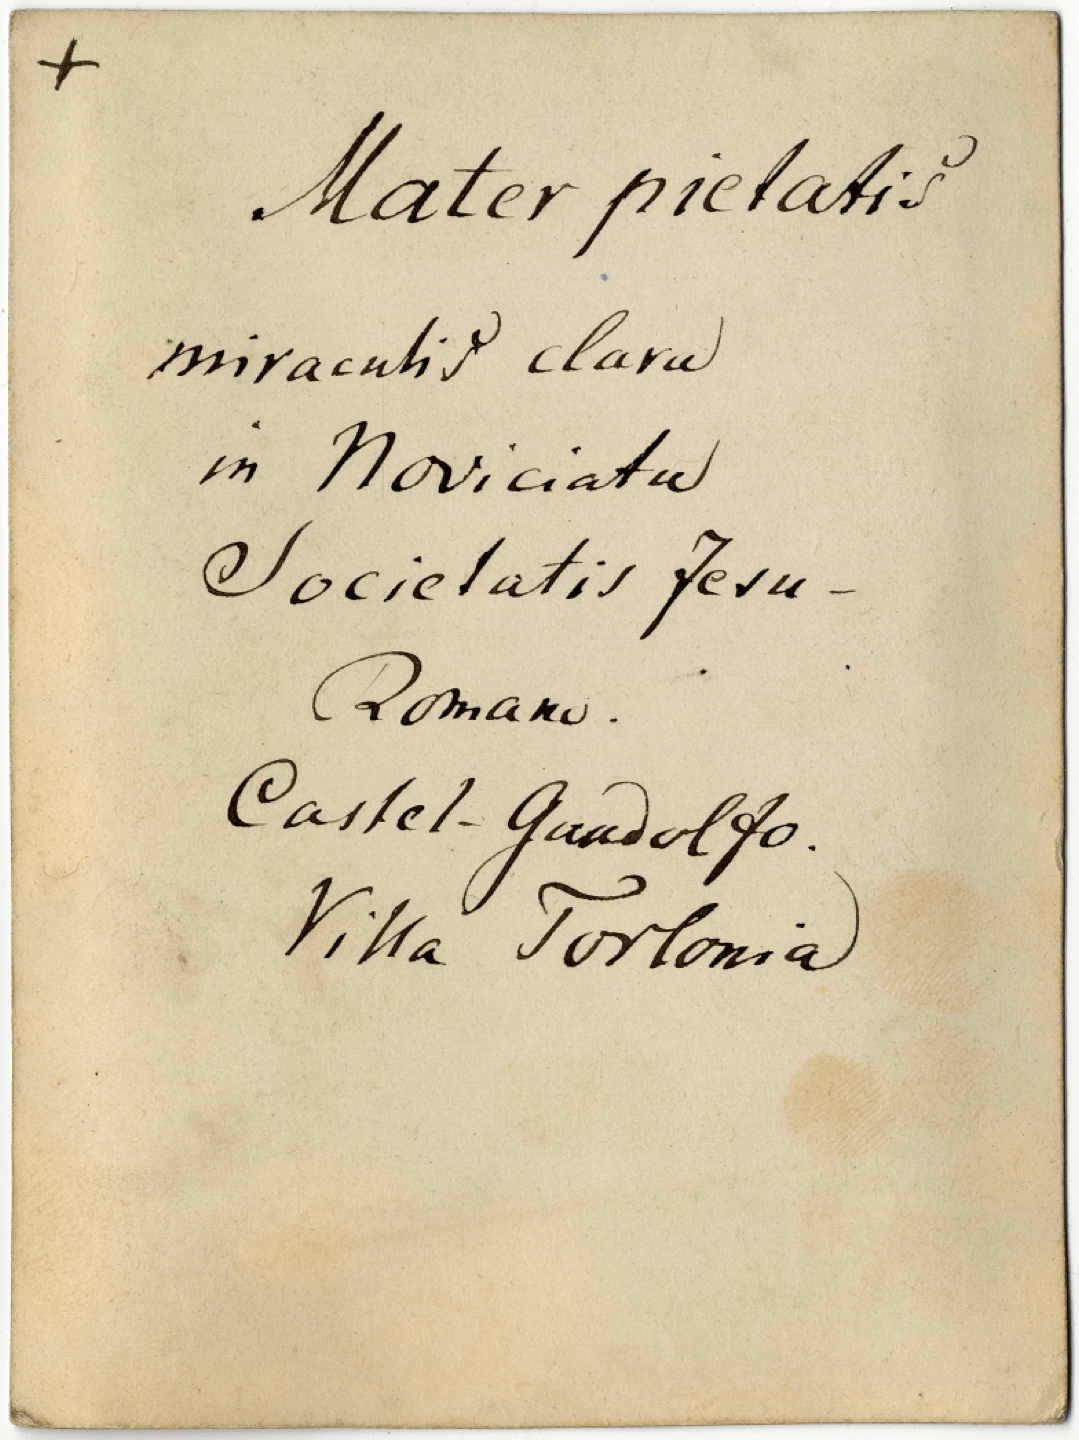 +
Mater pietatis
miraculis clara
in Noviciatu
Societatis Jesu -
Romano.
Castel-Gandolfo.
Villa Torlonia